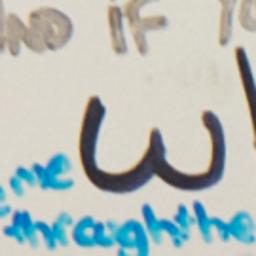 AND IF YO
W
me
through the